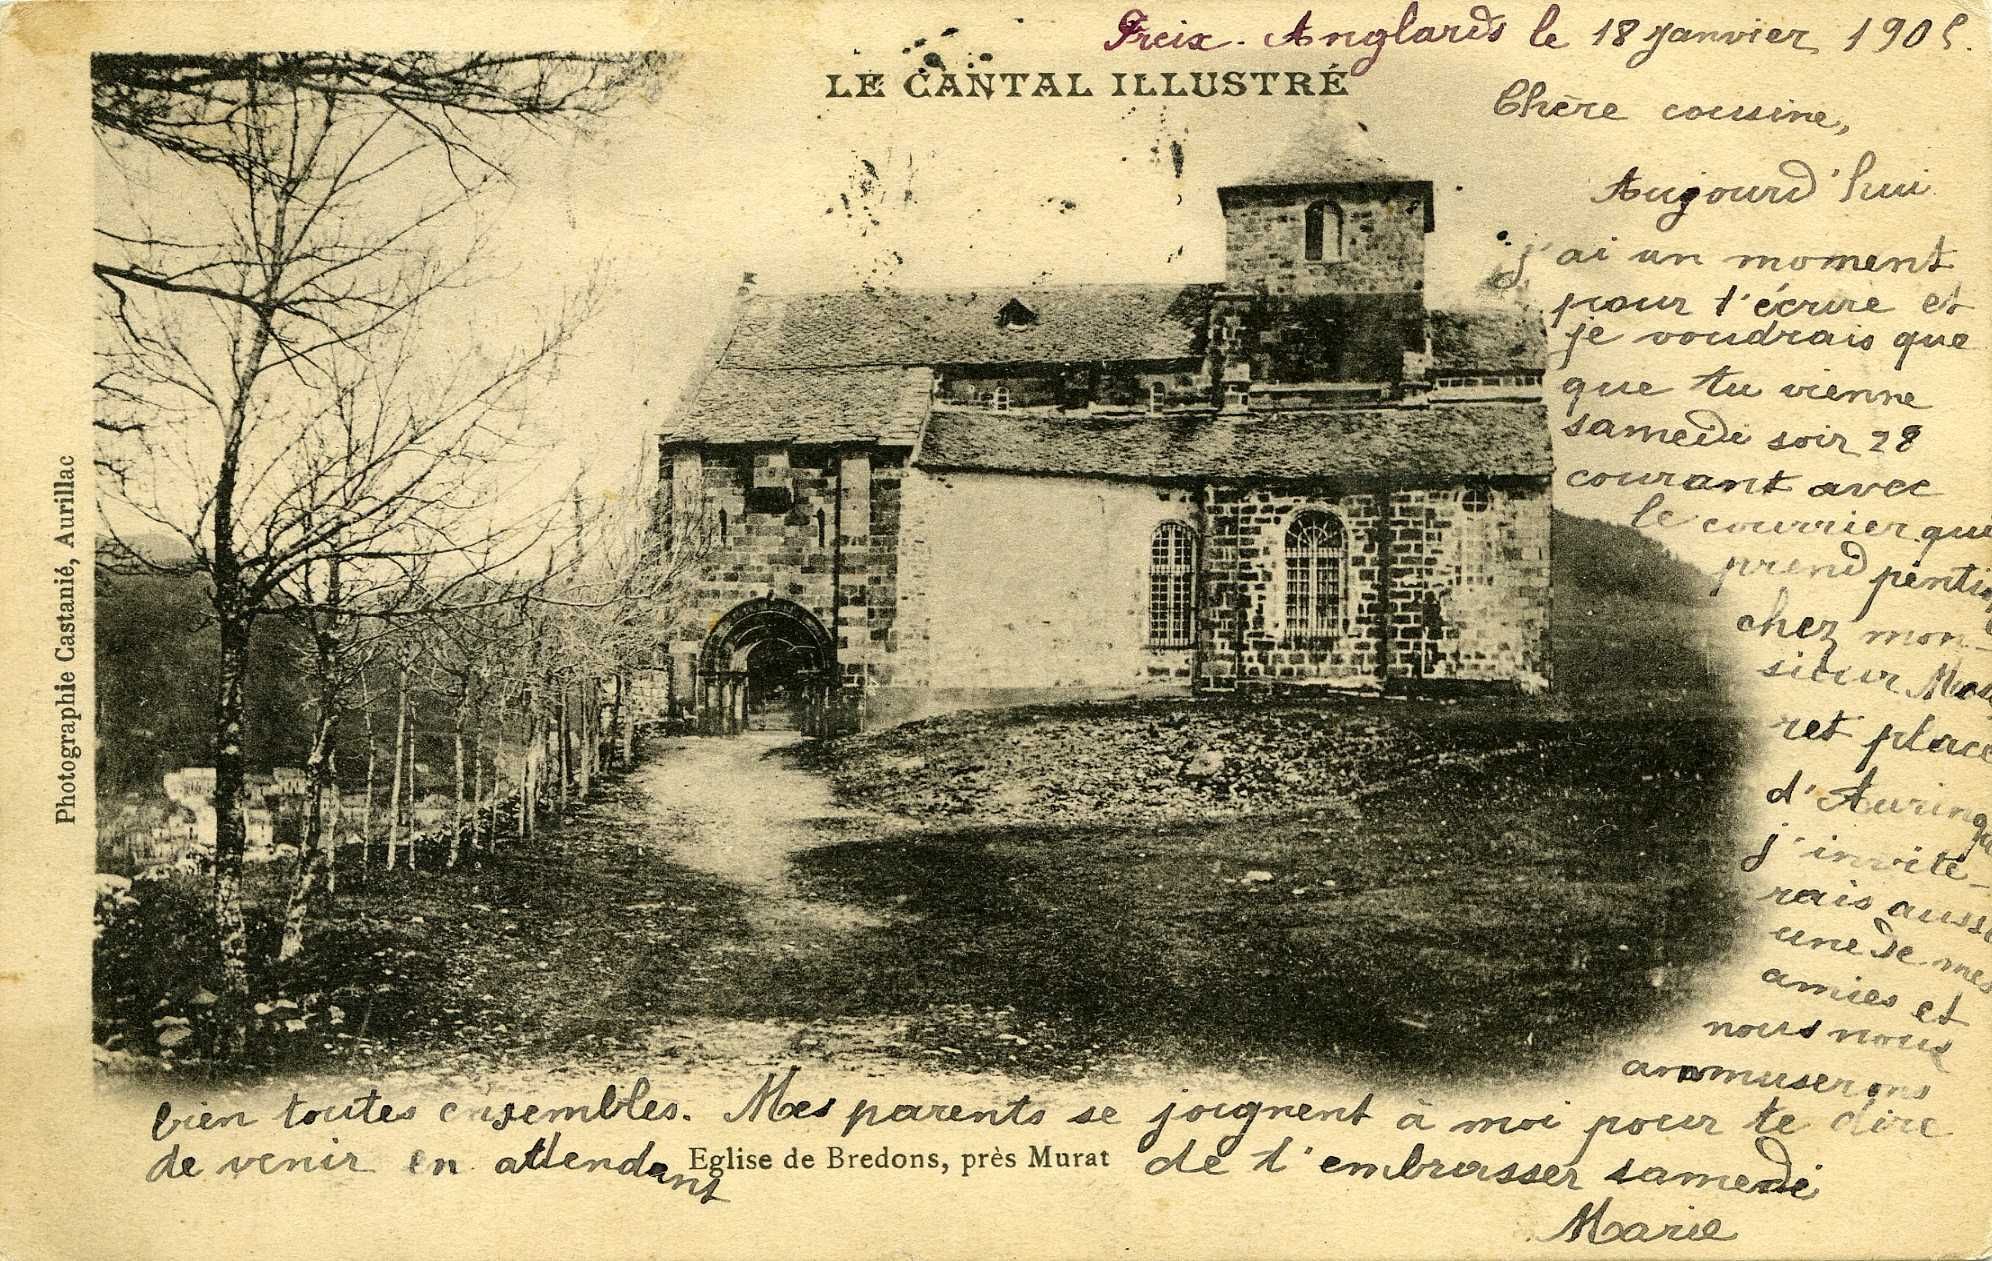 Freix-Anglards le 18 janvier 1905.
LE CANTAL ILLUSTRÉ
Chère cousine,
Aujourd'hui
j'ai un moment
pour t'écrire et
je voudrais que
que tu vienne
samedi soir 28
courant avec
le courrier qui
prend
chez mon-
sieur
ret place
d'Aurinques
j'invite-
rais aussi
une de mes
amies et
nous nous
ammuserons
bien toutes ensembles. Mes parents se joignent à moi pour te dire
de venir en attendant de t'embrasser samedi
Marie
Eglise de Bredons, près Murat
Photographie Castanié, Aurillac